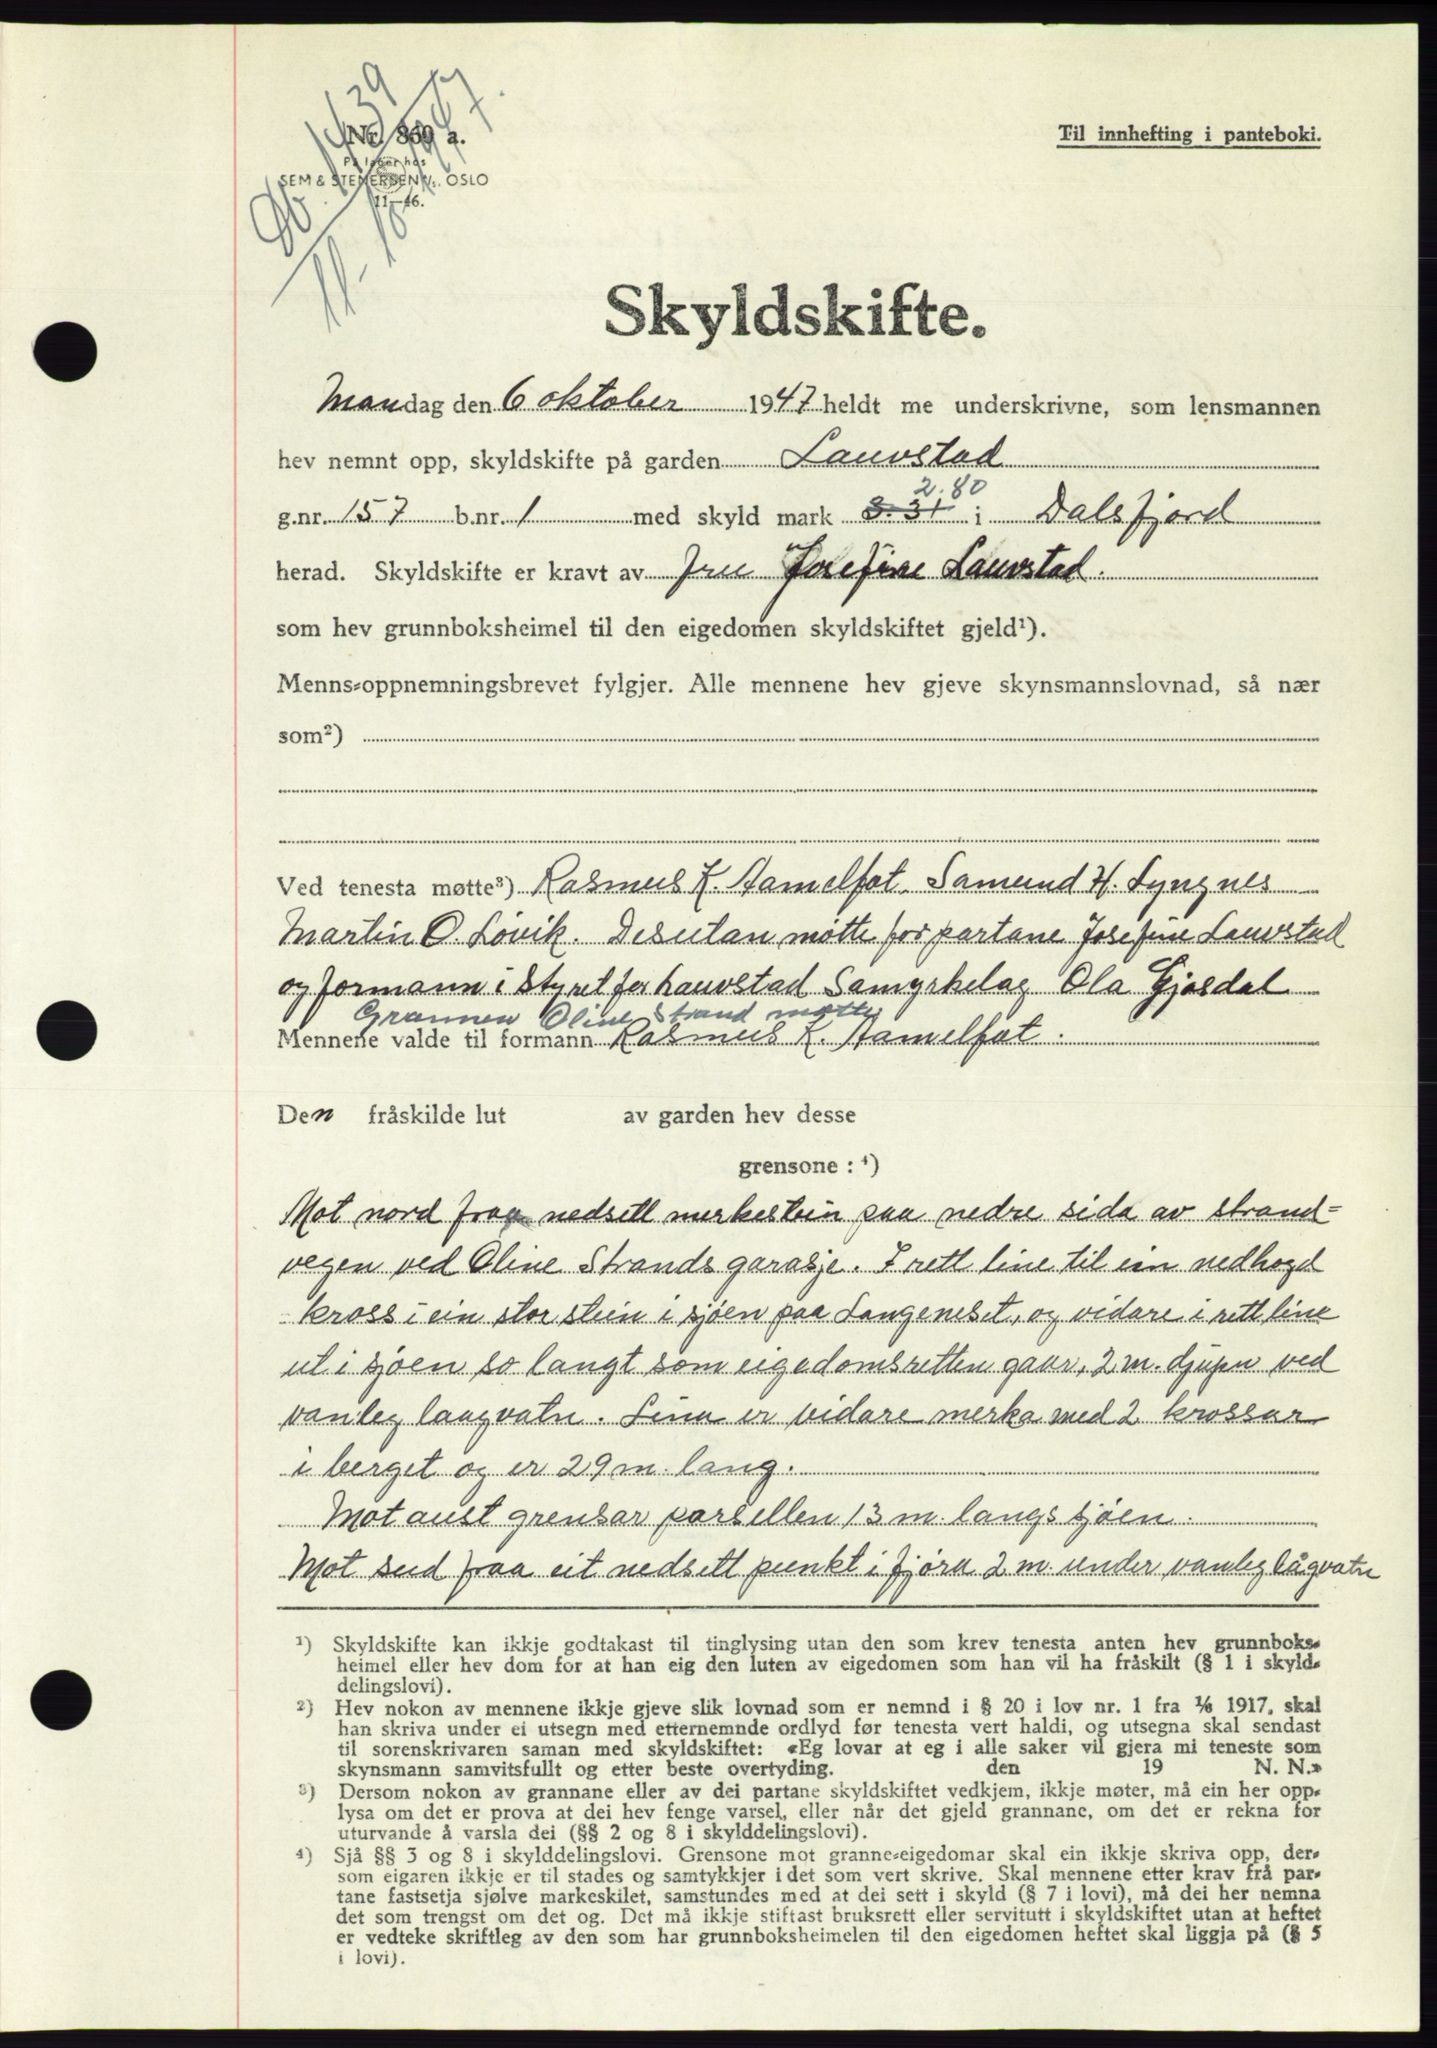 Db. 1439
11-10 1947.
Nr. 860 a.
På lager hos
SEM & STENERSEN A/S, OSLO
11—46.
Til innhefting i panteboki.
Skyldskifte.
Mandag den 6 oktober 1947 heldt me underskrivne, som lensmannen
hev nemnt opp, skyldskifte på garden Lauvstad
2.80
g.nr. 157 b.nr. 1 med skyld mark 3.31 i Dalsfjord
herad. Skyldskifte er kravt av fru Josefine Lauvstad.
som hev grunnboksheimel til den eigedomen skyldskiftet gjeld¹).
Menns-oppnemningsbrevet fylgjer. Alle mennene hev gjeve skynsmannslovnad, så nær
som²)
Ved tenesta møtte³) Rasmus K. Aamelfot. Samund H. Lyngnes
Martin O. Løvik. Desutan møtte for partane Josefine Lauvstad
og formann i Styret for Lauvstad Samyrkelag Ola Gjøsdal
Grannen Oline Strand møtte
Mennene valde til formann Rasmus K. Aamelfot.
Den fråskilde lut av garden hev desse
grensone : ⁴)
Mot nord fraa nedsett merkestein paa nedre sida av strand=
vegen ved Oline Strands garasje. I rett line til ein nedhogd
kross i ein stor stein i sjøen paa Langeneset, og vidare i rett line
ut i sjøen so langt som eigedomsretten gaar, 2 m. djupn ved
vanleg laagvatn. Lina er vidare merka med 2 krossar
i berget og er 29 m. lang.
Mot aust grensar parsellen 13 m. langs sjøen.
Mot sud fraa eit nedsett punkt i fjøra 2 m. under vanleg lågvatn
¹) Skyldskifte kan ikkje godtakast til tinglysing utan den som krev tenesta anten hev grunnboks-
heimel eller hev dom for at han eig den luten av eigedomen som han vil ha fråskilt (§ 1 i skyld-
delingslovi).
²) Hev nokon av mennene ikkje gjeve slik lovnad som er nemnd i § 20 i lov nr. 1 fra ¹/₆ 1917, skal
han skriva under ei utsegn med etternemnde ordlyd før tenesta vert haldi, og utsegna skal sendast
til sorenskrivaren saman med skyldskiftet: «Eg lovar at eg i alle saker vil gjera mi teneste som
skynsmann samvitsfullt og etter beste overtyding. den 19 N. N.»
³) Dersom nokon av grannane eller av dei partane skyldskiftet vedkjem, ikkje møter, må ein her opp-
lysa om det er prova at dei hev fenge varsel, eller når det gjeld grannane, om det er rekna for
uturvande å varsla dei (§§ 2 og 8 i skylddelingslovi).
⁴) Sjå §§ 3 og 8 i skylddelingslovi. Grensone mot granne-eigedomar skal ein ikkje skriva opp, der-
som eigaren ikkje er til stades og samtykkjer i det som vert skrive. Skal mennene etter krav frå par-
tane fastsetja sjølve markeskilet, samstundes med at dei sett i skyld (§ 7 i lovi), må dei her nemna
det som trengst om det og. Det må ikkje stiftast bruksrett eller servitutt i skyldskiftet utan at heftet
er vedteke skriftleg av den som har grunnboksheimelen til den eigedomen heftet skal liggja på (§ 5
i lovi).